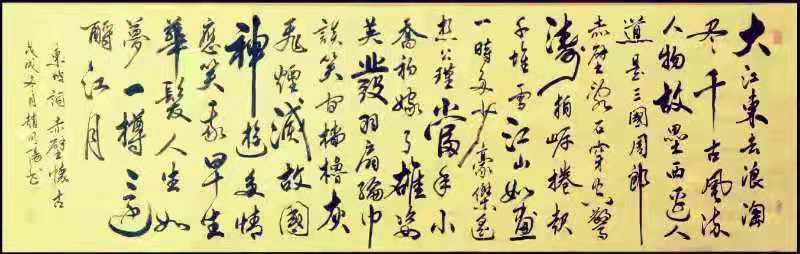 大江東去浪淘
尽千古風流
人物故壘西邊人
道是三國周郎
赤壁乱石穿空驚
濤拍岸捲起
千堆雪江山如畫
一時多少豪傑遥
想公瑾當年小
喬初嫁了雄姿
英發羽扇綸巾
談笑間檣櫓灰
飛煙滅故國
神遊多情
應笑我早生
華髮人生如
夢一樽還
酹江月
東坡詞赤壁懷古
戊戌冬月書